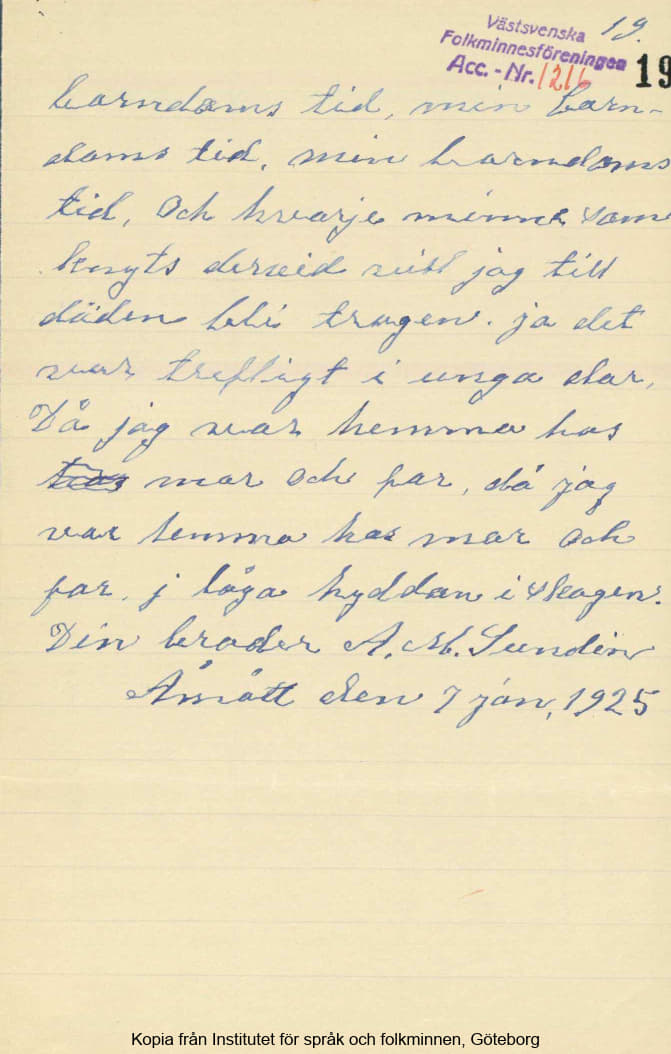 Västsvenska
Folkminnesföreningen
Acc.-Nr. 1216
19.
19
barndoms tid, min barn-
doms tid, min barndoms
tid, Och hvarje minne som
knyts dervid vill jag till
döden bli trogen. ja det
var trefligt i unga dar,
Då jag var hemma hos
hos mor och far, då jag
var hemma hos mor och
far, j låga hyddan i skogen.
Din broder A. M. Sundin
den 7 jan, 1925
Kopia från Institutet för språk och folkminnen, Göteborg